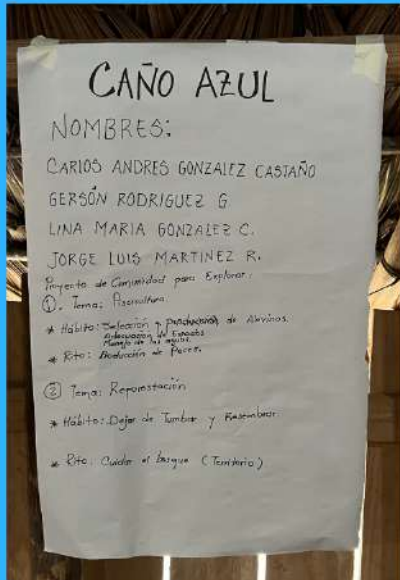 CAÑO AZUL
NOMBRES:
CARLOS ANDRES GONZALEZ CASTAÑO
GERSÓN RODRIGUEZ G
LINA MARIA GONZALEZ C.
JORGE LUIS MARTINEZ R.
Proyecto de Comunidad para Explorar:
①. Tema: Piscicultura.
* Hábito: Selección y producción de Alevinos.
Adecuación de Espacios
Manejo de las aguas.
* Rito: Producción de Peces.
② Tema: Reforestación
* Hábito: Dejar de Tumbar y Resembrar.
* Rito: Cuidar el bosque (Territorio)